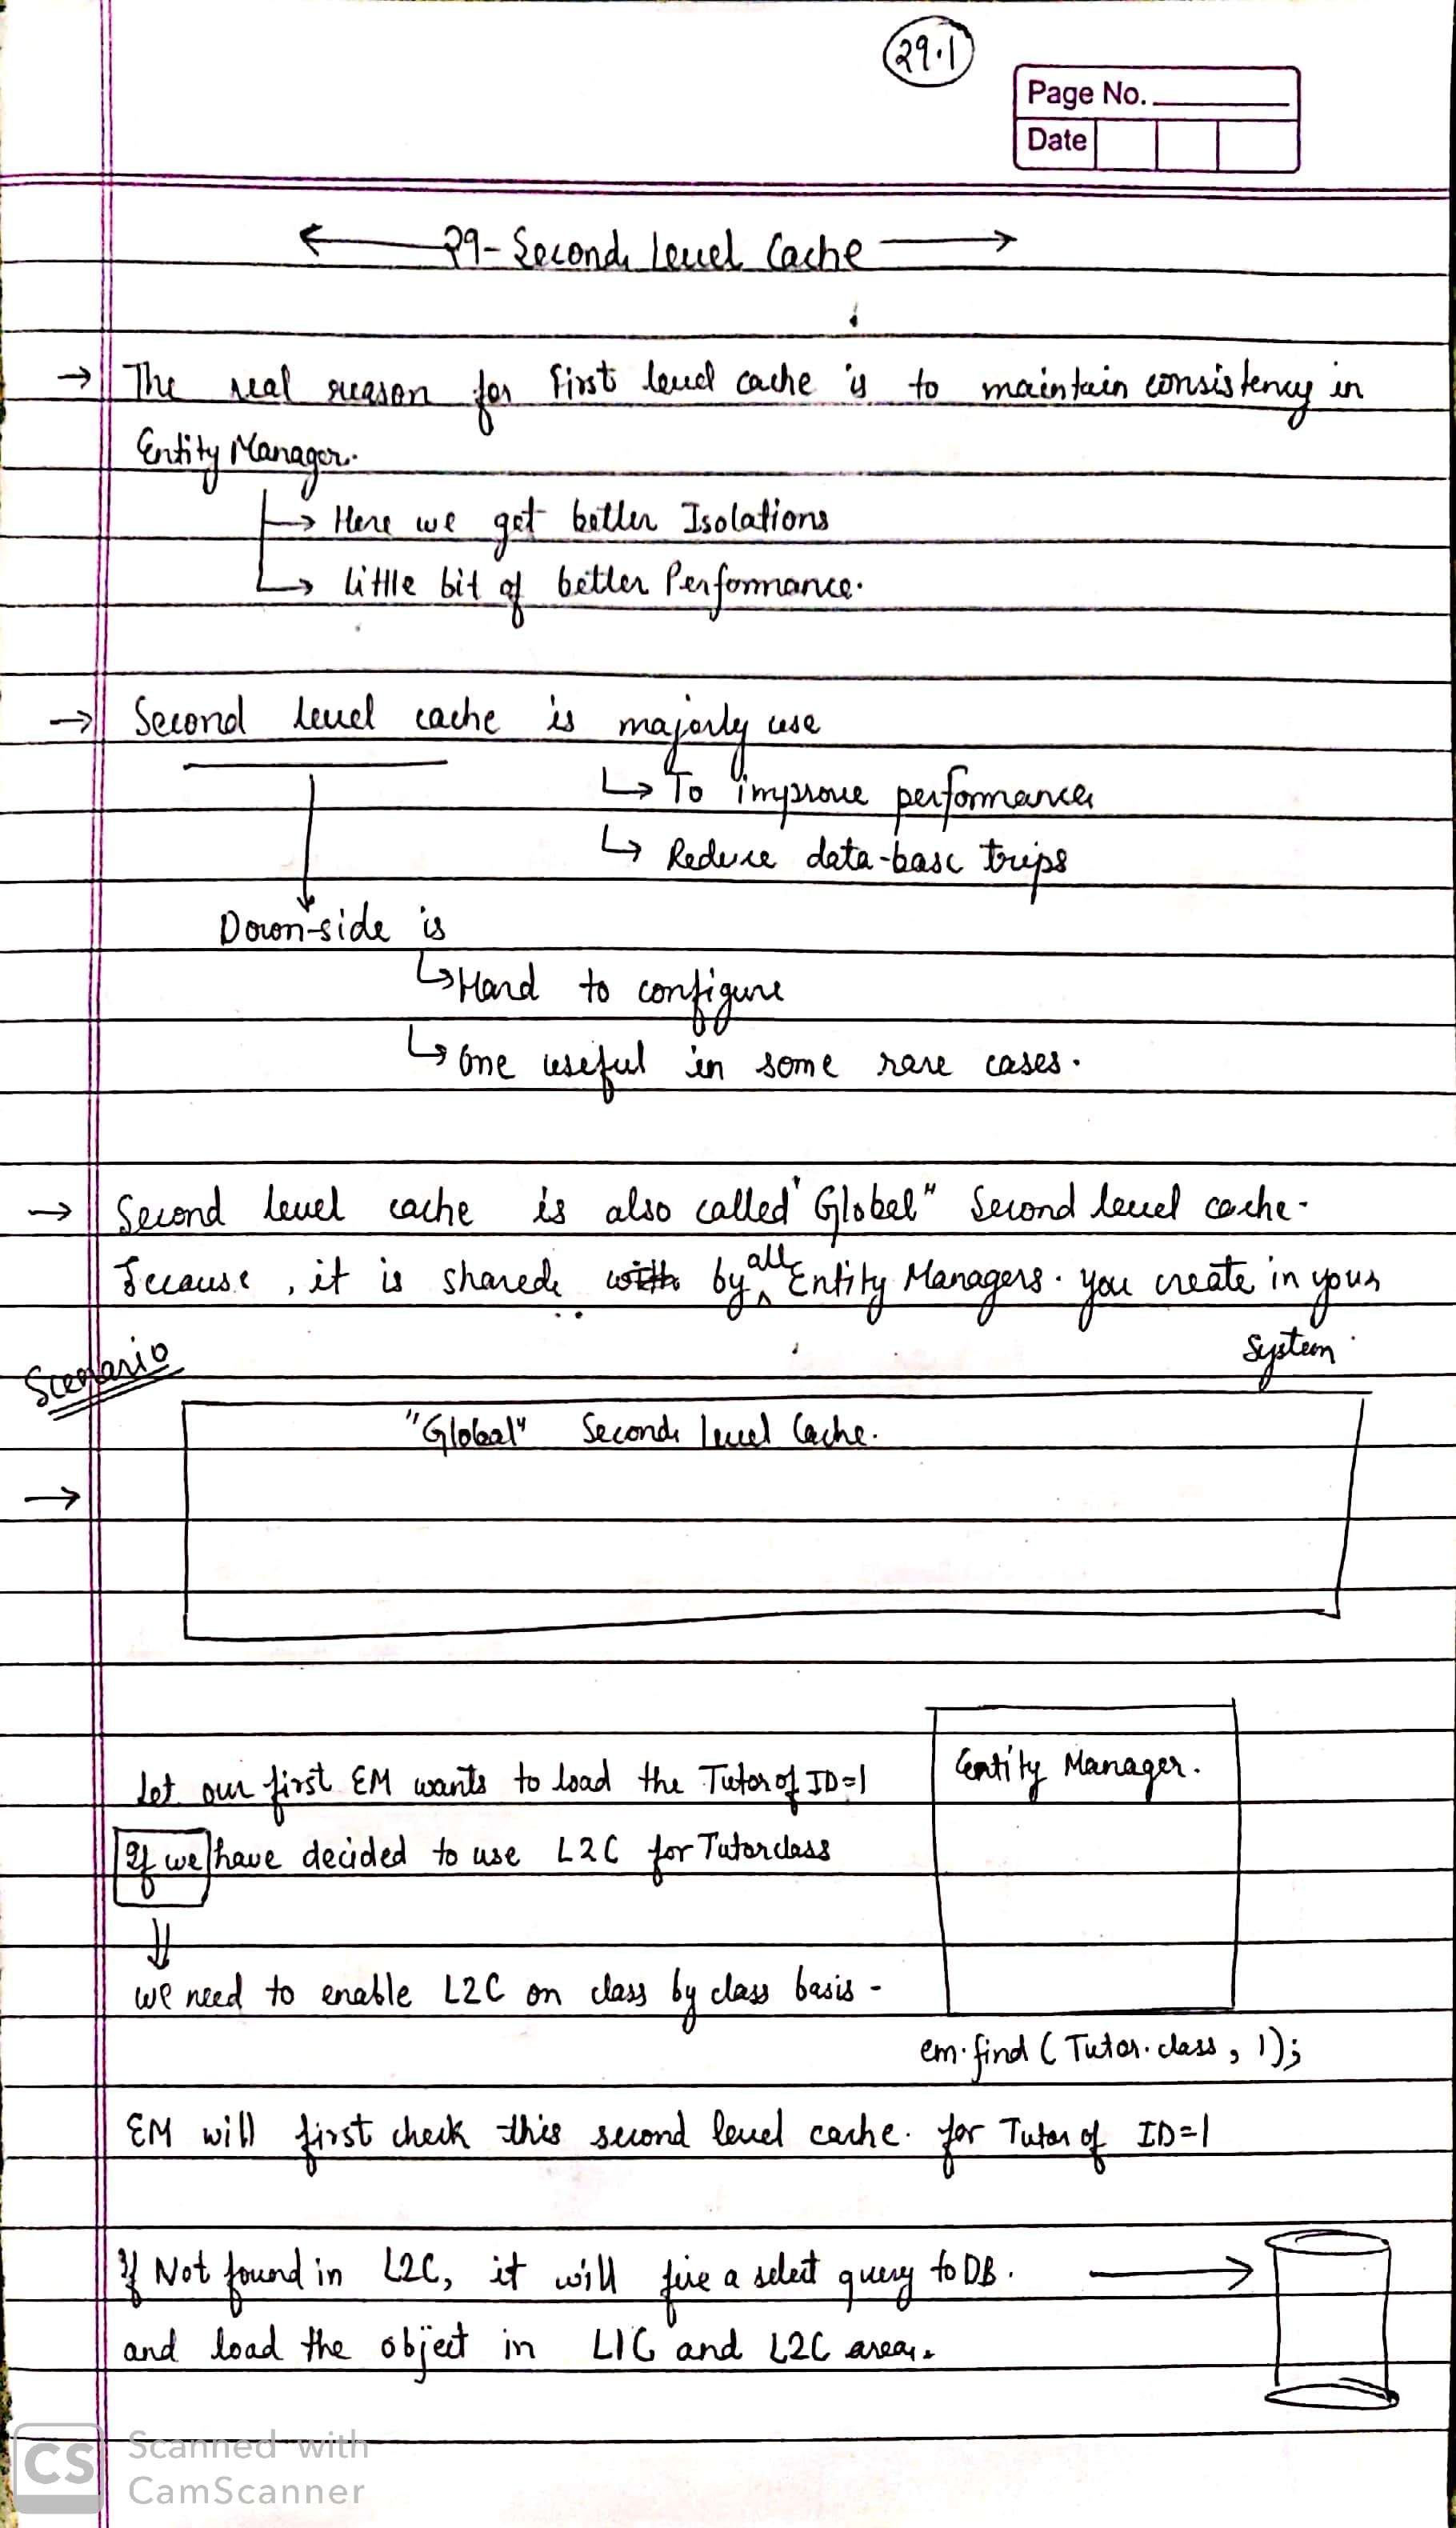 29.1
Page No.
Date
29- Second Level Cache
→ The real reason for first level cache is to maintain consistency in
Entity Manager.
↳ Here we get better Isolations
↳ little bit of better Performance.
→ Second level cache is majorly use
↳ To improve performance
↳ Reduce data-base trips
Down-side is
↳ Hard to configure
↳ One useful in some rare cases.
→ Second level cache is also called "Global" Second level cache.
Because, it is shared with by all Entity Managers. you create in your
System.
Scenario
"Global" Second Level Cache.
→
Entity Manager.
Let our first EM wants to load the Tutor of ID=1
If we have decided to use L2C for Tutor class
⇓
we need to enable L2C on class by class basis -
em.find ( Tutor.class, 1);
EM will first check this second level cache. for Tutor of ID=1
If Not found in L2C, it will fire a select query to DB. →
and load the object in L1C and L2C area.
CS
Scanned with
CamScanner